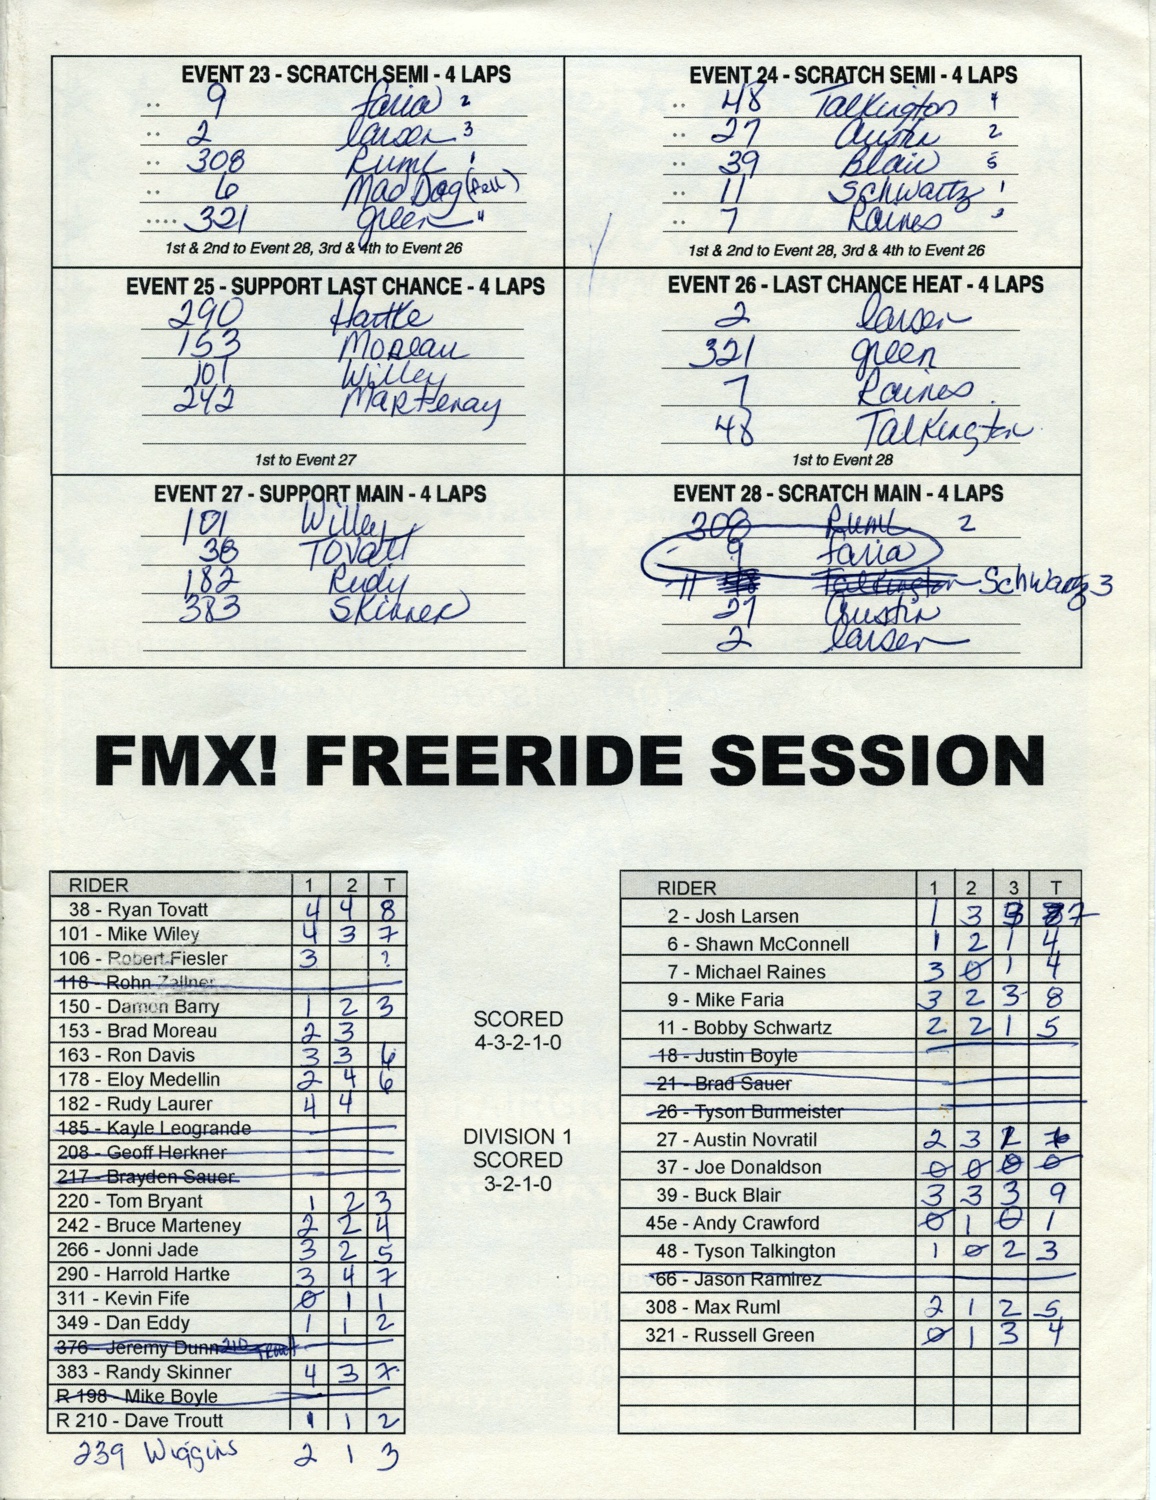 EVENT 23 - SCRATCH SEMI - 4 LAPS
.. 9 Faria 2
.. 2 Larsen 3
.. 308 Ruml 1
.. 6 Mad Dog (fell)
..... 321 Green 4
1st & 2nd to Event 28, 3rd & 4th to Event 26
EVENT 24 - SCRATCH SEMI - 4 LAPS
.. 48 Talkington 4
.. 27 Austin 2
.. 39 Blair 5
.. 11 Schwartz 1
.. 7 Raines 3
1st & 2nd to Event 28, 3rd & 4th to Event 26
EVENT 25 - SUPPORT LAST CHANCE - 4 LAPS
290 Hartke
153 Moreau
101 Willey
242 Martenay
1st to Event 27
EVENT 26 - LAST CHANCE HEAT - 4 LAPS
2 Larsen
321 Green
7 Raines
48 Talkington
1st to Event 28
EVENT 27 - SUPPORT MAIN - 4 LAPS
101 Willey
38 Tovatt
182 Rudy
383 Skinner
EVENT 28 - SCRATCH MAIN - 4 LAPS
308 Ruml 2
9 Faria
11 48 Talkington Schwartz 3
27 Austin
2 Larsen
FMX! FREERIDE SESSION
RIDER 1 2 T
38 - Ryan Tovatt 4 4 8
101 - Mike Wiley 4 3 7
106 - Robert Fiesler 3 ?
118 - Rohn Zellner
150 - Damon Barry 1 2 3
153 - Brad Moreau 2 3
163 - Ron Davis 3 3 6
178 - Eloy Medellin 2 4 6
182 - Rudy Laurer 4 4
185 - Kayle Leogrande
208 - Geoff Herkner
217 - Brayden Sauer
220 - Tom Bryant 1 2 3
242 - Bruce Marteney 2 2 4
266 - Jonni Jade 3 2 5
290 - Harrold Hartke 3 4 7
311 - Kevin Fife 0 1 1
349 - Dan Eddy 1 1 2
376 - Jeremy Dunn 210
383 - Randy Skinner 4 3 7
R 198 - Mike Boyle
R 210 - Dave Troutt 1 1 2
239 Wiggins 2 1 3
SCORED
4-3-2-1-0
DIVISION 1
SCORED
3-2-1-0
RIDER 1 2 3 T
2 - Josh Larsen 1 3 3 7
6 - Shawn McConnell 1 2 1 4
7 - Michael Raines 3 0 1 4
9 - Mike Faria 3 2 3 8
11 - Bobby Schwartz 2 2 1 5
18 - Justin Boyle
21 - Brad Sauer
26 - Tyson Burmeister
27 - Austin Novratil 2 3 2
37 - Joe Donaldson 0 0 0 0
39 - Buck Blair 3 3 3 9
45e - Andy Crawford 0 1 0 1
48 - Tyson Talkington 1 0 2 3
66 - Jason Ramirez
308 - Max Ruml 2 1 2 5
321 - Russell Green 0 1 3 4